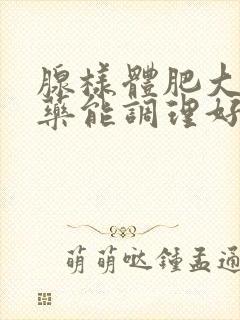 腺樣體肥大
藥能調理好
萌萌哒鍾孟通